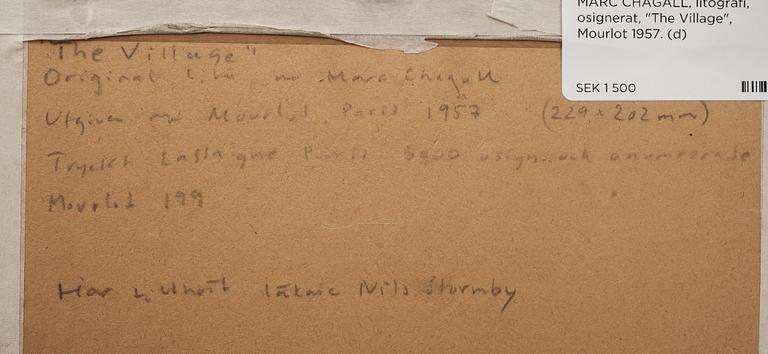 MARC CHAGALL, litografi,
osignerat, "The Village",
Mourlot 1957. (d)
SEK 1 500
"The Village"
Original litu av Marc Chagall
Utgiven av Mourlot, Paris 1957 (229 x 202 mm)
Tryckt Lassaigne Paris osign. och onumrerade
Mourlot 199
Har tillhört läkare Nils Stormby